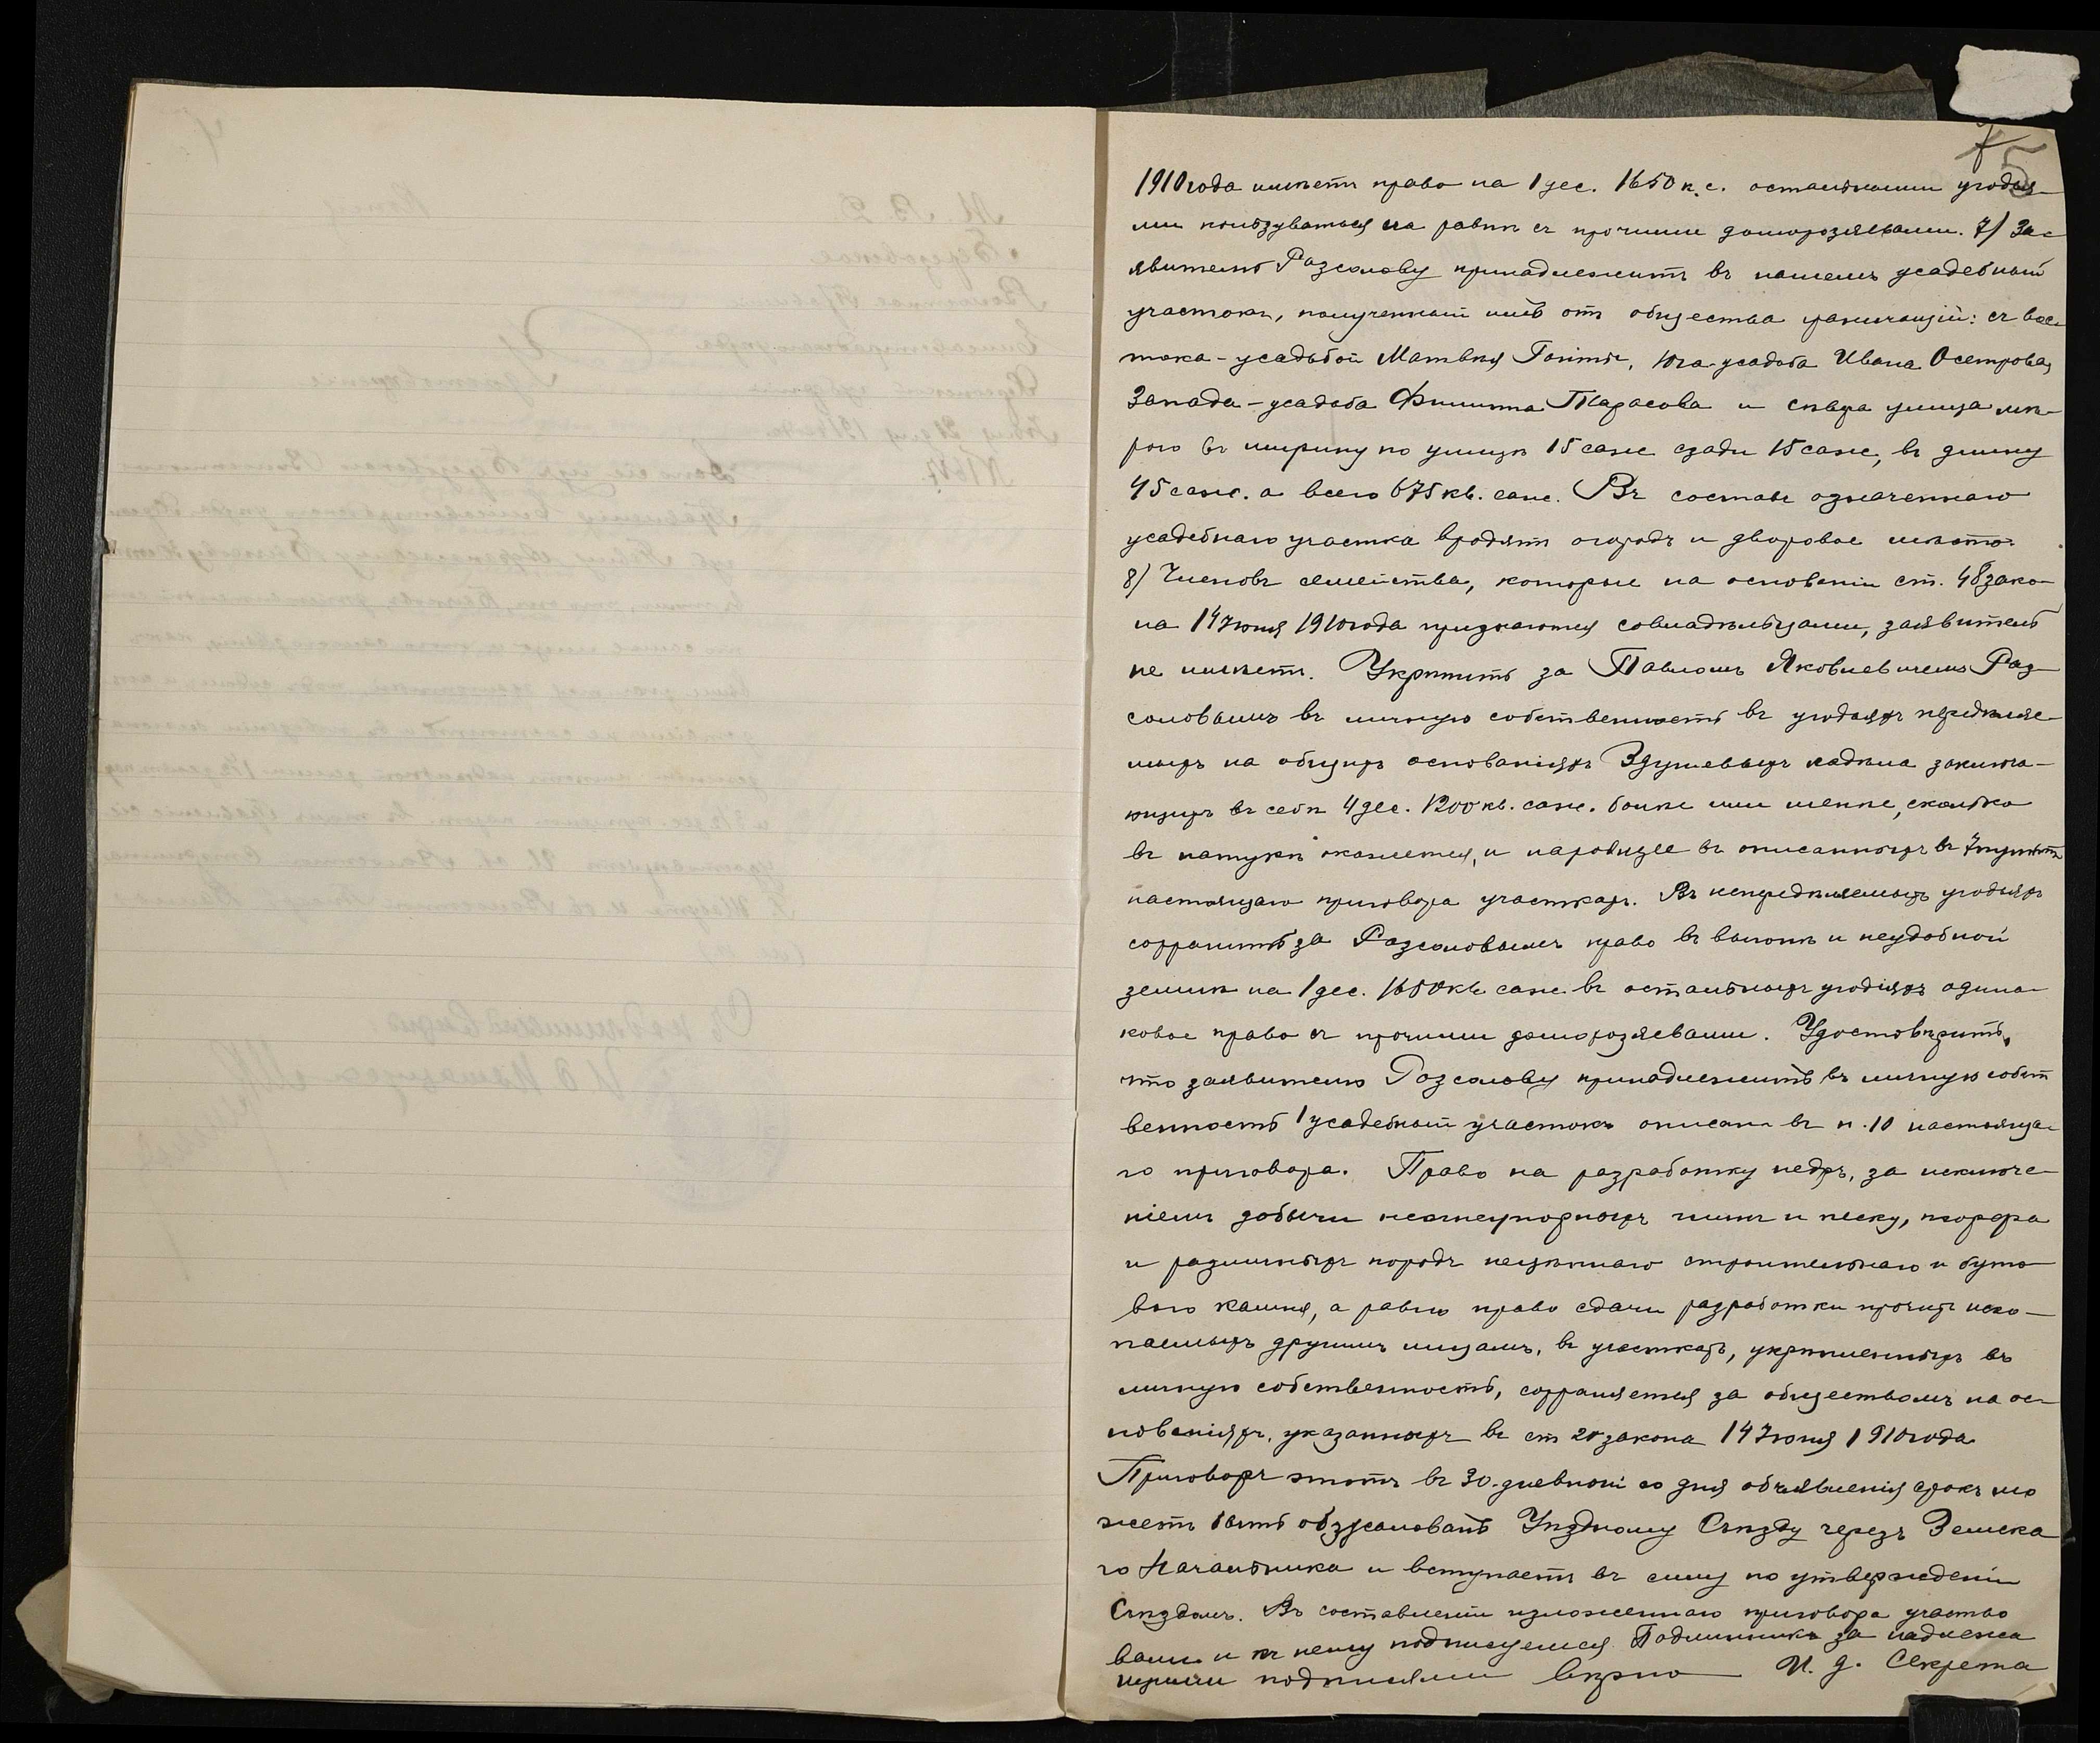 5
1910 года имѣетъ право на 1 дес. 1650 к. с. остальными угодья-
ми пользуваться на равнѣ съ прочими домохозяевами. 7/ За-
явителю Разсолову принадлежитъ въ нашемъ усадебный
участокъ, полученный имъ отъ общества граничащій: съ вос-
тока - усадьбой Матвѣя, Юга усадьба Ивана Осетрова,
Запада - усадьба Филиппа Тарасова и сѣвра улица мѣ-
рою въ ширину по улицѣ 15 саж сзади 15 саж, въ длину
45 саж. а всего 675 кв. саж. Въ составъ означеннаго
усадебнаго участка входятъ огородъ и дворовое мѣсто.
8/ Членовъ семейства, которые на основаніи ст. 48 зако-
на 14 Іюня 1910 года признаются совладѣльцами, заявитель
не имѣетъ. Укрѣпить за Павломъ Яковлевичемъ Раз-
соловымъ въ личную собственность въ угодьяхъ передѣляе-
мыхъ на общихъ основаніяхъ 3 душевыхъ надѣла заключа-
ющихъ въ себѣ 4 дес. 1200 кв. саж. болѣе или менѣе, сколько
въ натурѣ окажется, и находящее въ описанныхъ въ 7 пунктѣ
настоящаго приговора участкахъ. Въ непередѣляемыхъ угодьяхъ
сохранить за Разсоловымъ право въ выгонѣ и неудобной
землѣ на 1 дес. 1650 кв саж. въ остальныхъ угодіяхъ одина-
ковое право съ прочими домохозяевами. Удостовѣрить,
что заявителю Розсолову принадлежитъ въ личную собст
венность 1 усадебный участокъ описанъ въ п. 10 настояща-
го приговора. Право на разработку недръ, за исключе-
ніемъ добычи неогнеупорныхъ глинъ и песку, торфа
и различныхъ породъ нецѣннаго строительнаго и буто
вого камня, а равно право сдачи разработки прочихъ иско-
паемыхъ другимъ лицамъ, въ участкахъ, укрѣпленныхъ въ
личную собственность, сохраняется за обществомъ на ос-
нованіяхъ, указанныхъ въ ст 20 закона 14 Іюня 1910 года
Приговоръ этотъ въ 30-дневной со дня объявленія срокъ мо
жетъ быть обжалованъ Уѣздному Съѣзду черезъ Земска
го Начальника и вступаетъ въ силу по утвержденіи
Съѣздомъ. Въ составленіи изложеннаго приговора участво
вали и къ нему подписуемся Подлинникъ за надлежа
щими подписями вѣрно И. д. Секрета